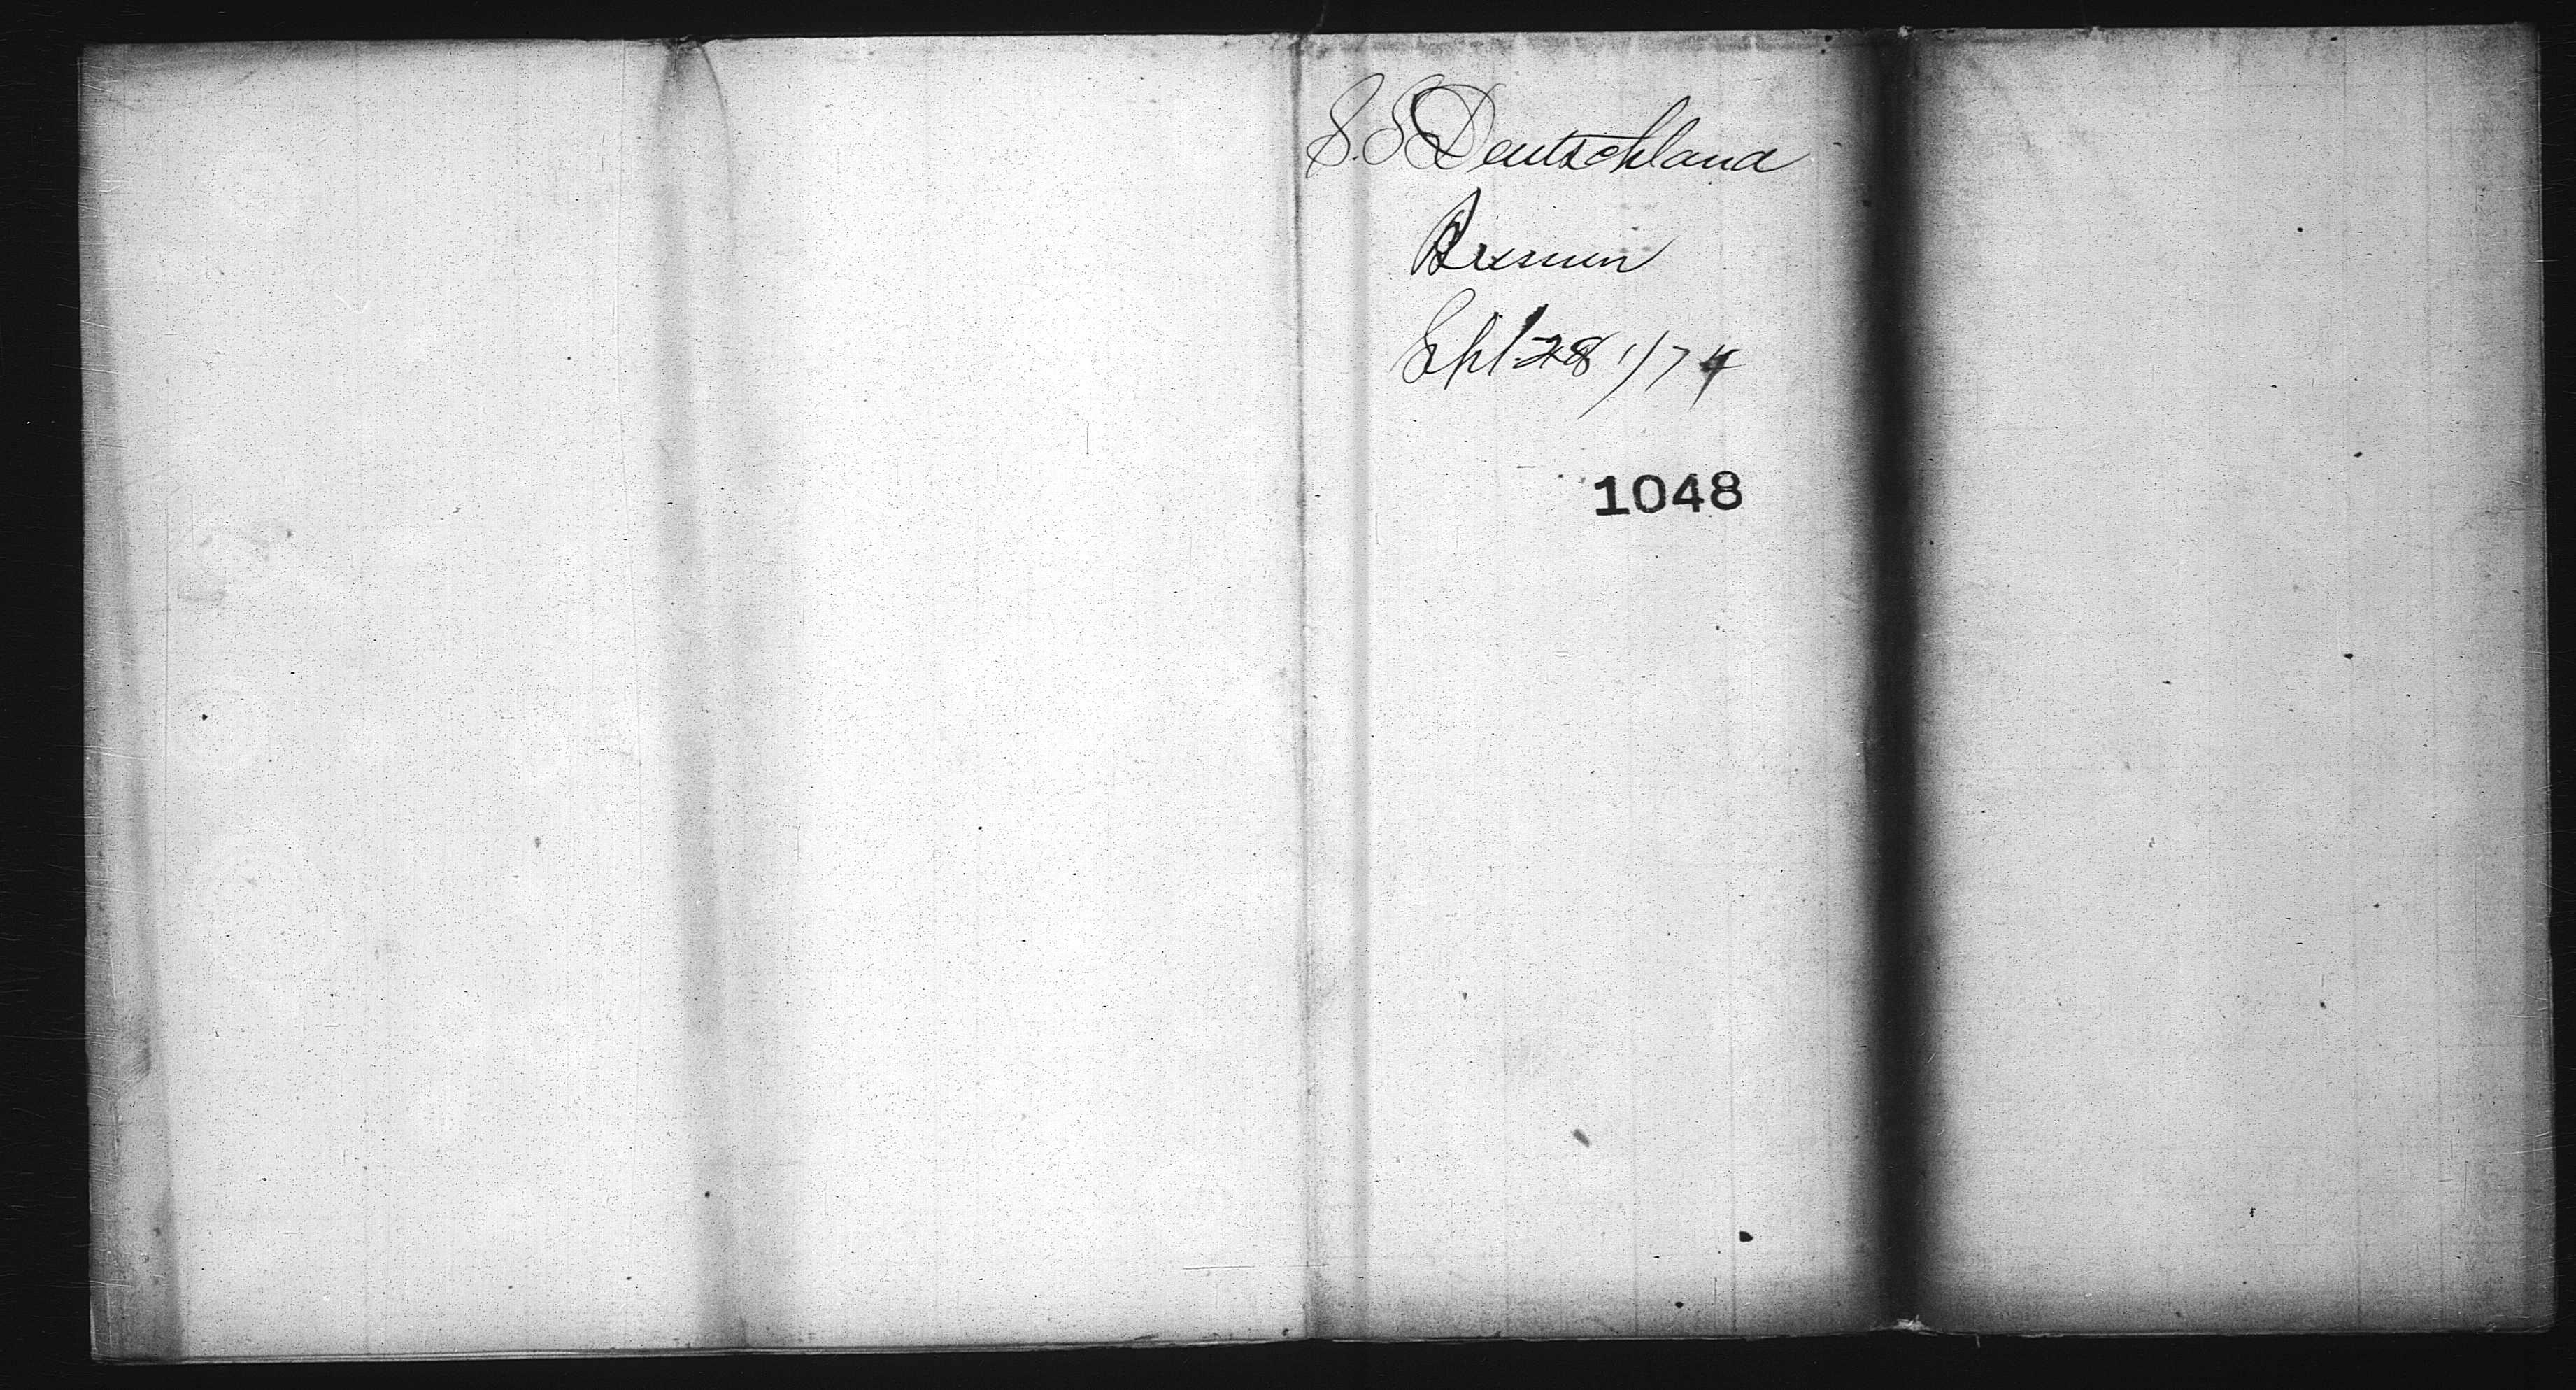 S.S Deutschland
Bremen
Sept 28 "/74
1048